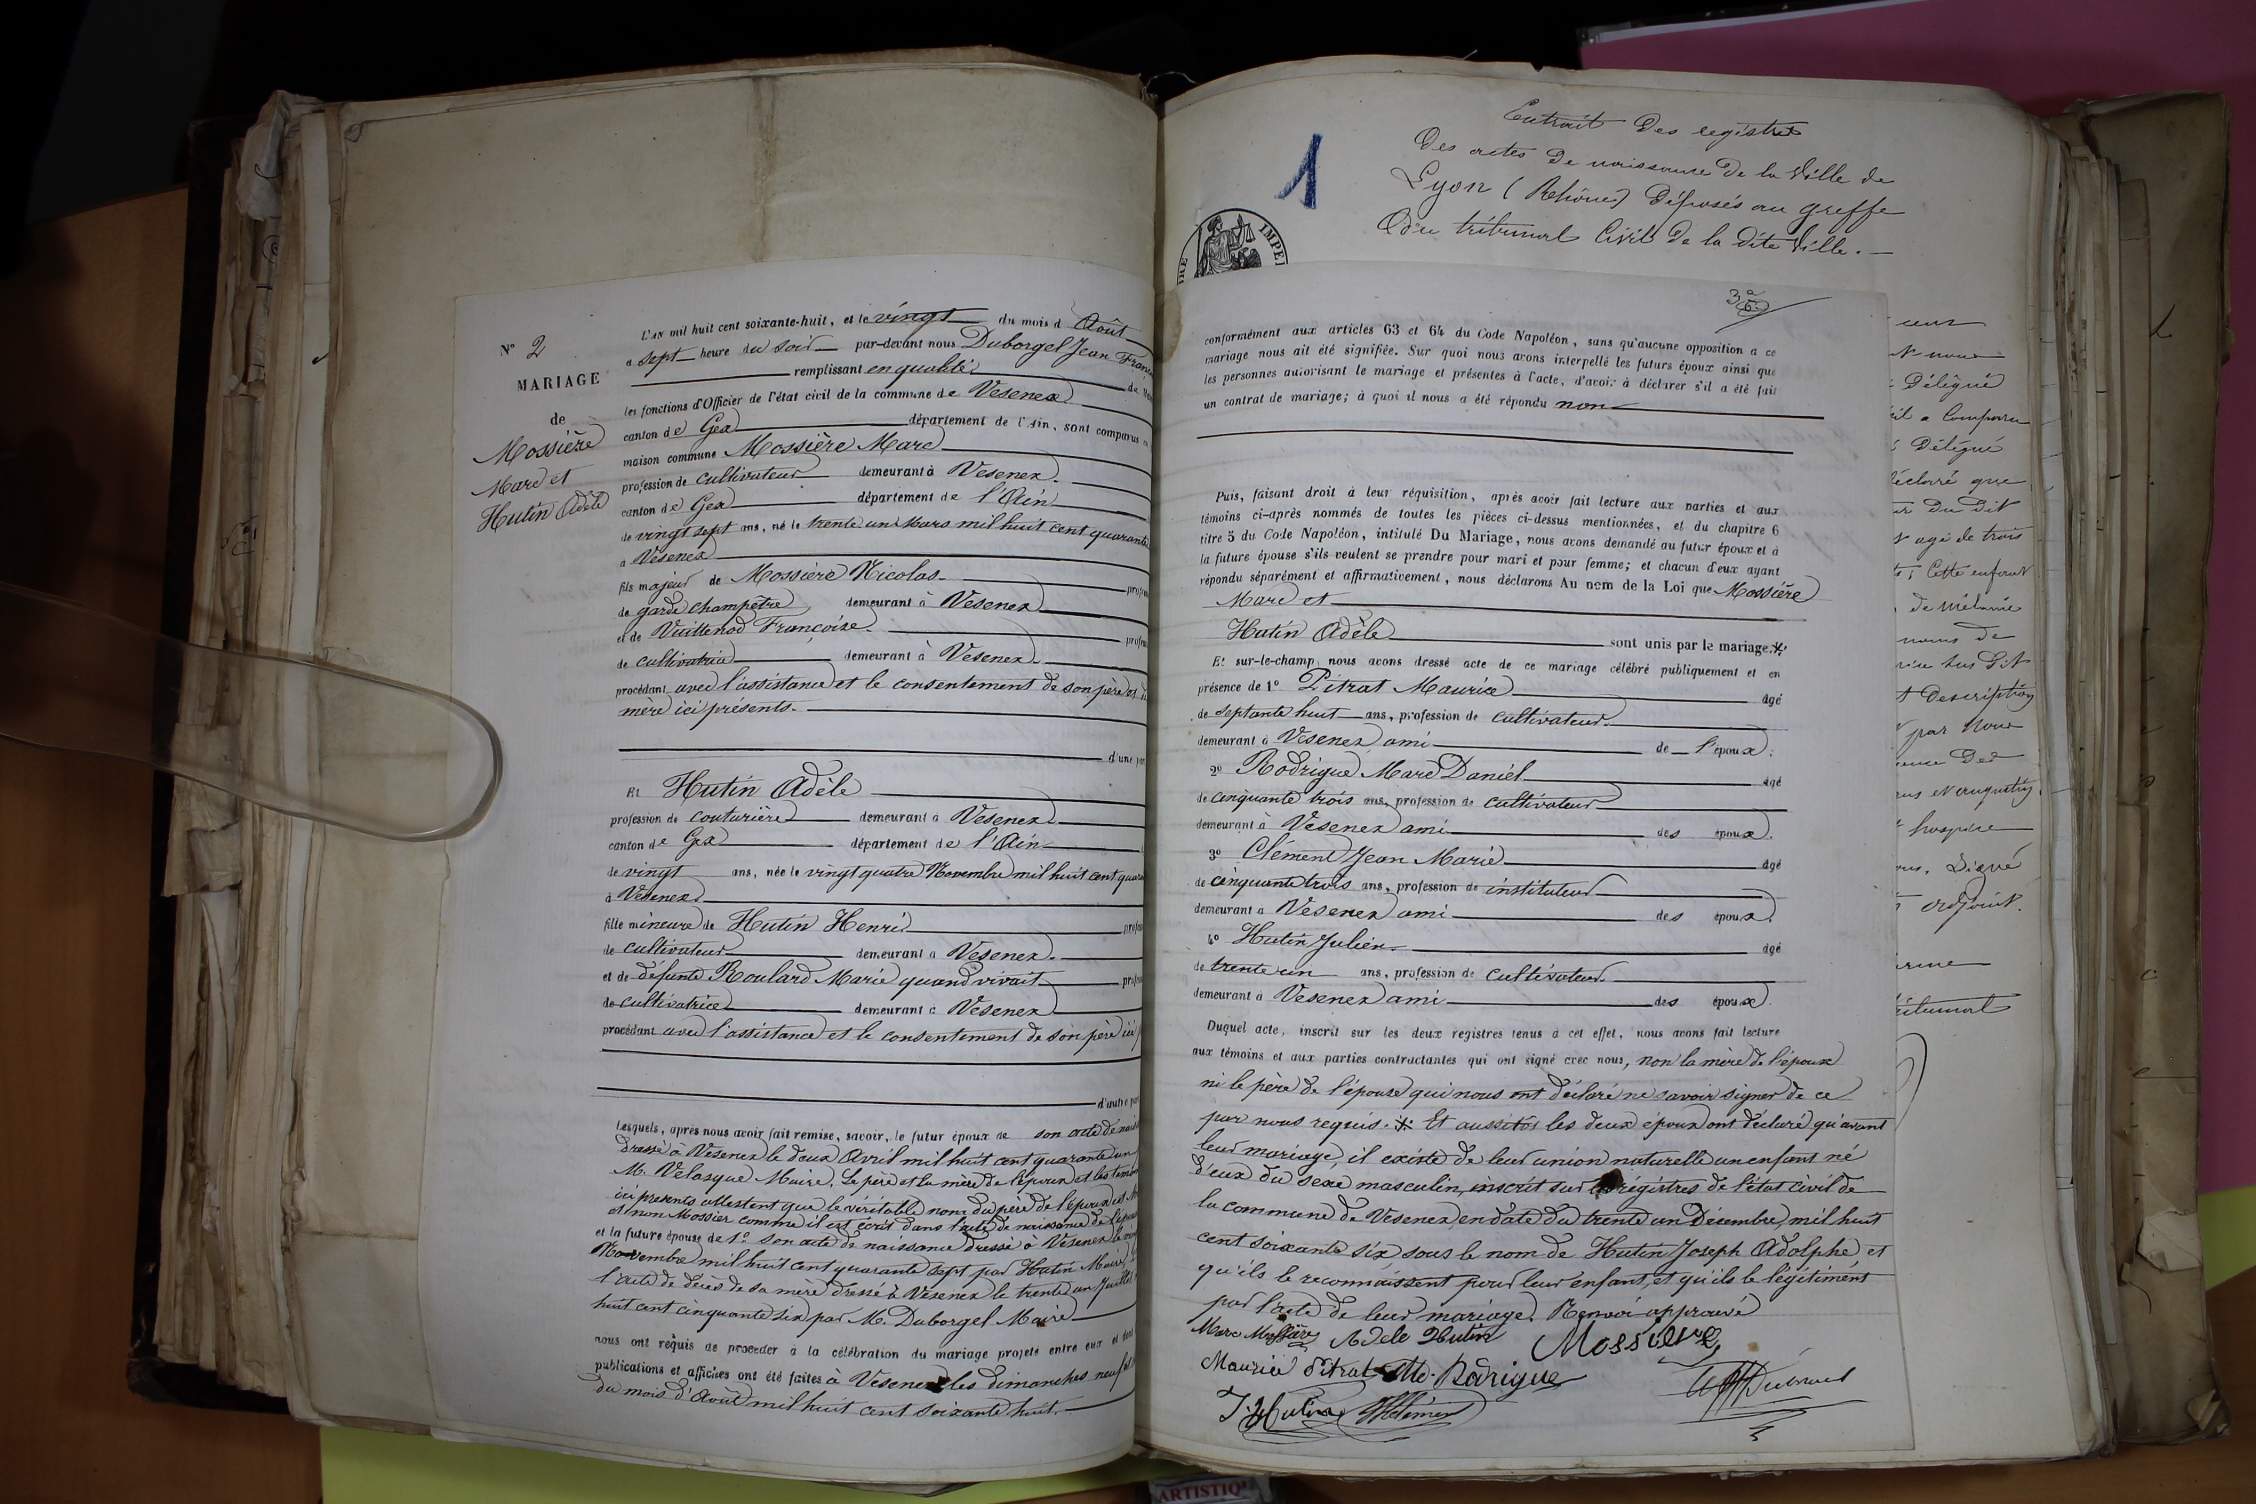 N° 2
MARIAGE
de
Mossière
Marc et
Hutin Adèle
L'an mil huit cent soixante-huit, et le vingt du mois d Août
a sept heure du soir par-devant nous Duborgel Jean Franç
remplissant en qualité de
les fonctions d'Officier de l'état civil de la commune de Vesenex
canton de Gex département de l'Ain, sont comparus en
maison commune Mossière Marc
profession de cultivateur demeurant à Vesenex
canton de Gex département de l'Ain
de vingt sept ans, né le trente un Mars mil huit cent quarante
a Vesenex
fils majeur de Mossière Nicolas profes
de garde champêtre demeurant à Vesenex
et de Vuittenod Françoise profes
de cultivatrice demeurant à Vesenex
procédant avec l'assistance et le consentement de son père et
mère ici présents.
d'une par
Et Hutin Adèle
profession de couturière demeurant à Vesenex
canton de Gex département de l'Ain
de vingt ans, née le vingt quatre Novembre mil huit cent quara
à Vesenex
fille mineure de Hutin Henri profes
de cultivateur demeurant à Vesenex
et de défunte Roulard Marie quand vivait profes
de cultivatrice demeurant à Vesenex
procédant avec l'assistance et le consentement de son père ici
d'autre par
Lesquels, après nous avoir fait remise, savoir, le futur époux de son acte de nais
dressé à Vesenex le deux Avril mil huit cent quarante un
M. Velasque Maire. Le père et la mère de l'époux et les témoins
ici présents attestent que le véritable nom du père de l'époux est
et non Mossier comme il est écrit dans l'acte de naissance de l'époux
et la future épouse de 1° son acte de naissance dressé à Vesenex le
Novembre mil huit cent quarante sept par Hutin Maire
l'acte de décès de sa mère dressé à Vesenex le trente un Juillet
huit cent cinquante six par M. Duborgel Maire
nous ont requis de procéder à la célébration du mariage projeté entre eux et dont
publications et affiches ont été faites à Vesenex les dimanches neuf
du mois d'Août mil huit cent soixante huit.
1
Extrait des registres
Des actes de naissance de la Ville de
Lyon (Rhône) Déposés au greffe
Du tribunal Civil de la dite Ville.
IMPE
conformément aux articles 63 et 64 du Code Napoléon, sans qu'aucune opposition a ce
mariage nous ait été signifiée. Sur quoi nous avons interpellé les futurs époux ainsi que
les personnes autorisant le mariage et présentes à l'acte, d'avoir à déclarer s'il a été fait
un contrat de mariage; à quoi il nous a été répondu non
Puis, faisant droit à leur réquisition, après avoir fait lecture aux parties et aux
témoins ci-après nommés de toutes les pièces ci-dessus mentionnées, et du chapitre 6
titre 5 du Code Napoléon, intitulé Du Mariage, nous avons demandé au futur époux et à
la future épouse s'ils veulent se prendre pour mari et pour femme; et chacun d'eux ayant
répondu séparément et affirmativement, nous déclarons Au nom de la Loi que Mossière
Marc et
Hutin Adèle sont unis par le mariage.
Et sur-le-champ nous avons dressé acte de ce mariage célébré publiquement et en
présence de 1° Pitrat Maurice agé
de septante huit ans, profession de cultivateur
demeurant à Vesenex ami de l'époux.
2° Rodrigue Marc Daniel agé
de cinquante trois ans, profession de cultivateur
demeurant à Vesenex ami des époux.
3° Clément Jean Marie agé
de cinquante trois ans, profession de instituteur
demeurant à Vesenex ami des époux.
4° Hutin Julien agé
de trente un ans, profession de cultivateur
demeurant à Vesenex ami des époux.
Duquel acte, inscrit sur les deux registres tenus à cet effet, nous avons fait lecture
aux témoins et aux parties contractantes qui ont signé avec nous, non la mère de l'époux
ni le père de l'épouse qui nous ont déclaré ne savoir signer de ce
par nous requis. Et aussitôt les deux époux ont déclaré qu'avant
leur mariage, il existe de leur union naturelle un enfant né
d'eux du sexe masculin, inscrit sur les régistres de l'état civil de
la commune de Vesenex en date du trente un Décembre mil huit
cent soixante six sous le nom de Hutin Joseph Adolphe et
qu'ils le reconnaissent pour leur enfant, et qu'ils le légitiment
par l'acte de leur mariage. Renvoi approuvé
Marc Mossière Adele Hutin Mossière
Maurice Pitrat Md. Rodrigue
J. Hutin Clément
Délégué
il a Comparu
Délégué
déclaré que
Du Dit
agé de trois
Cette enfant
de mélanie
noms de
Description
par Nous
hospice
Signé
adjoint.
tribunal
ARTISTIQ